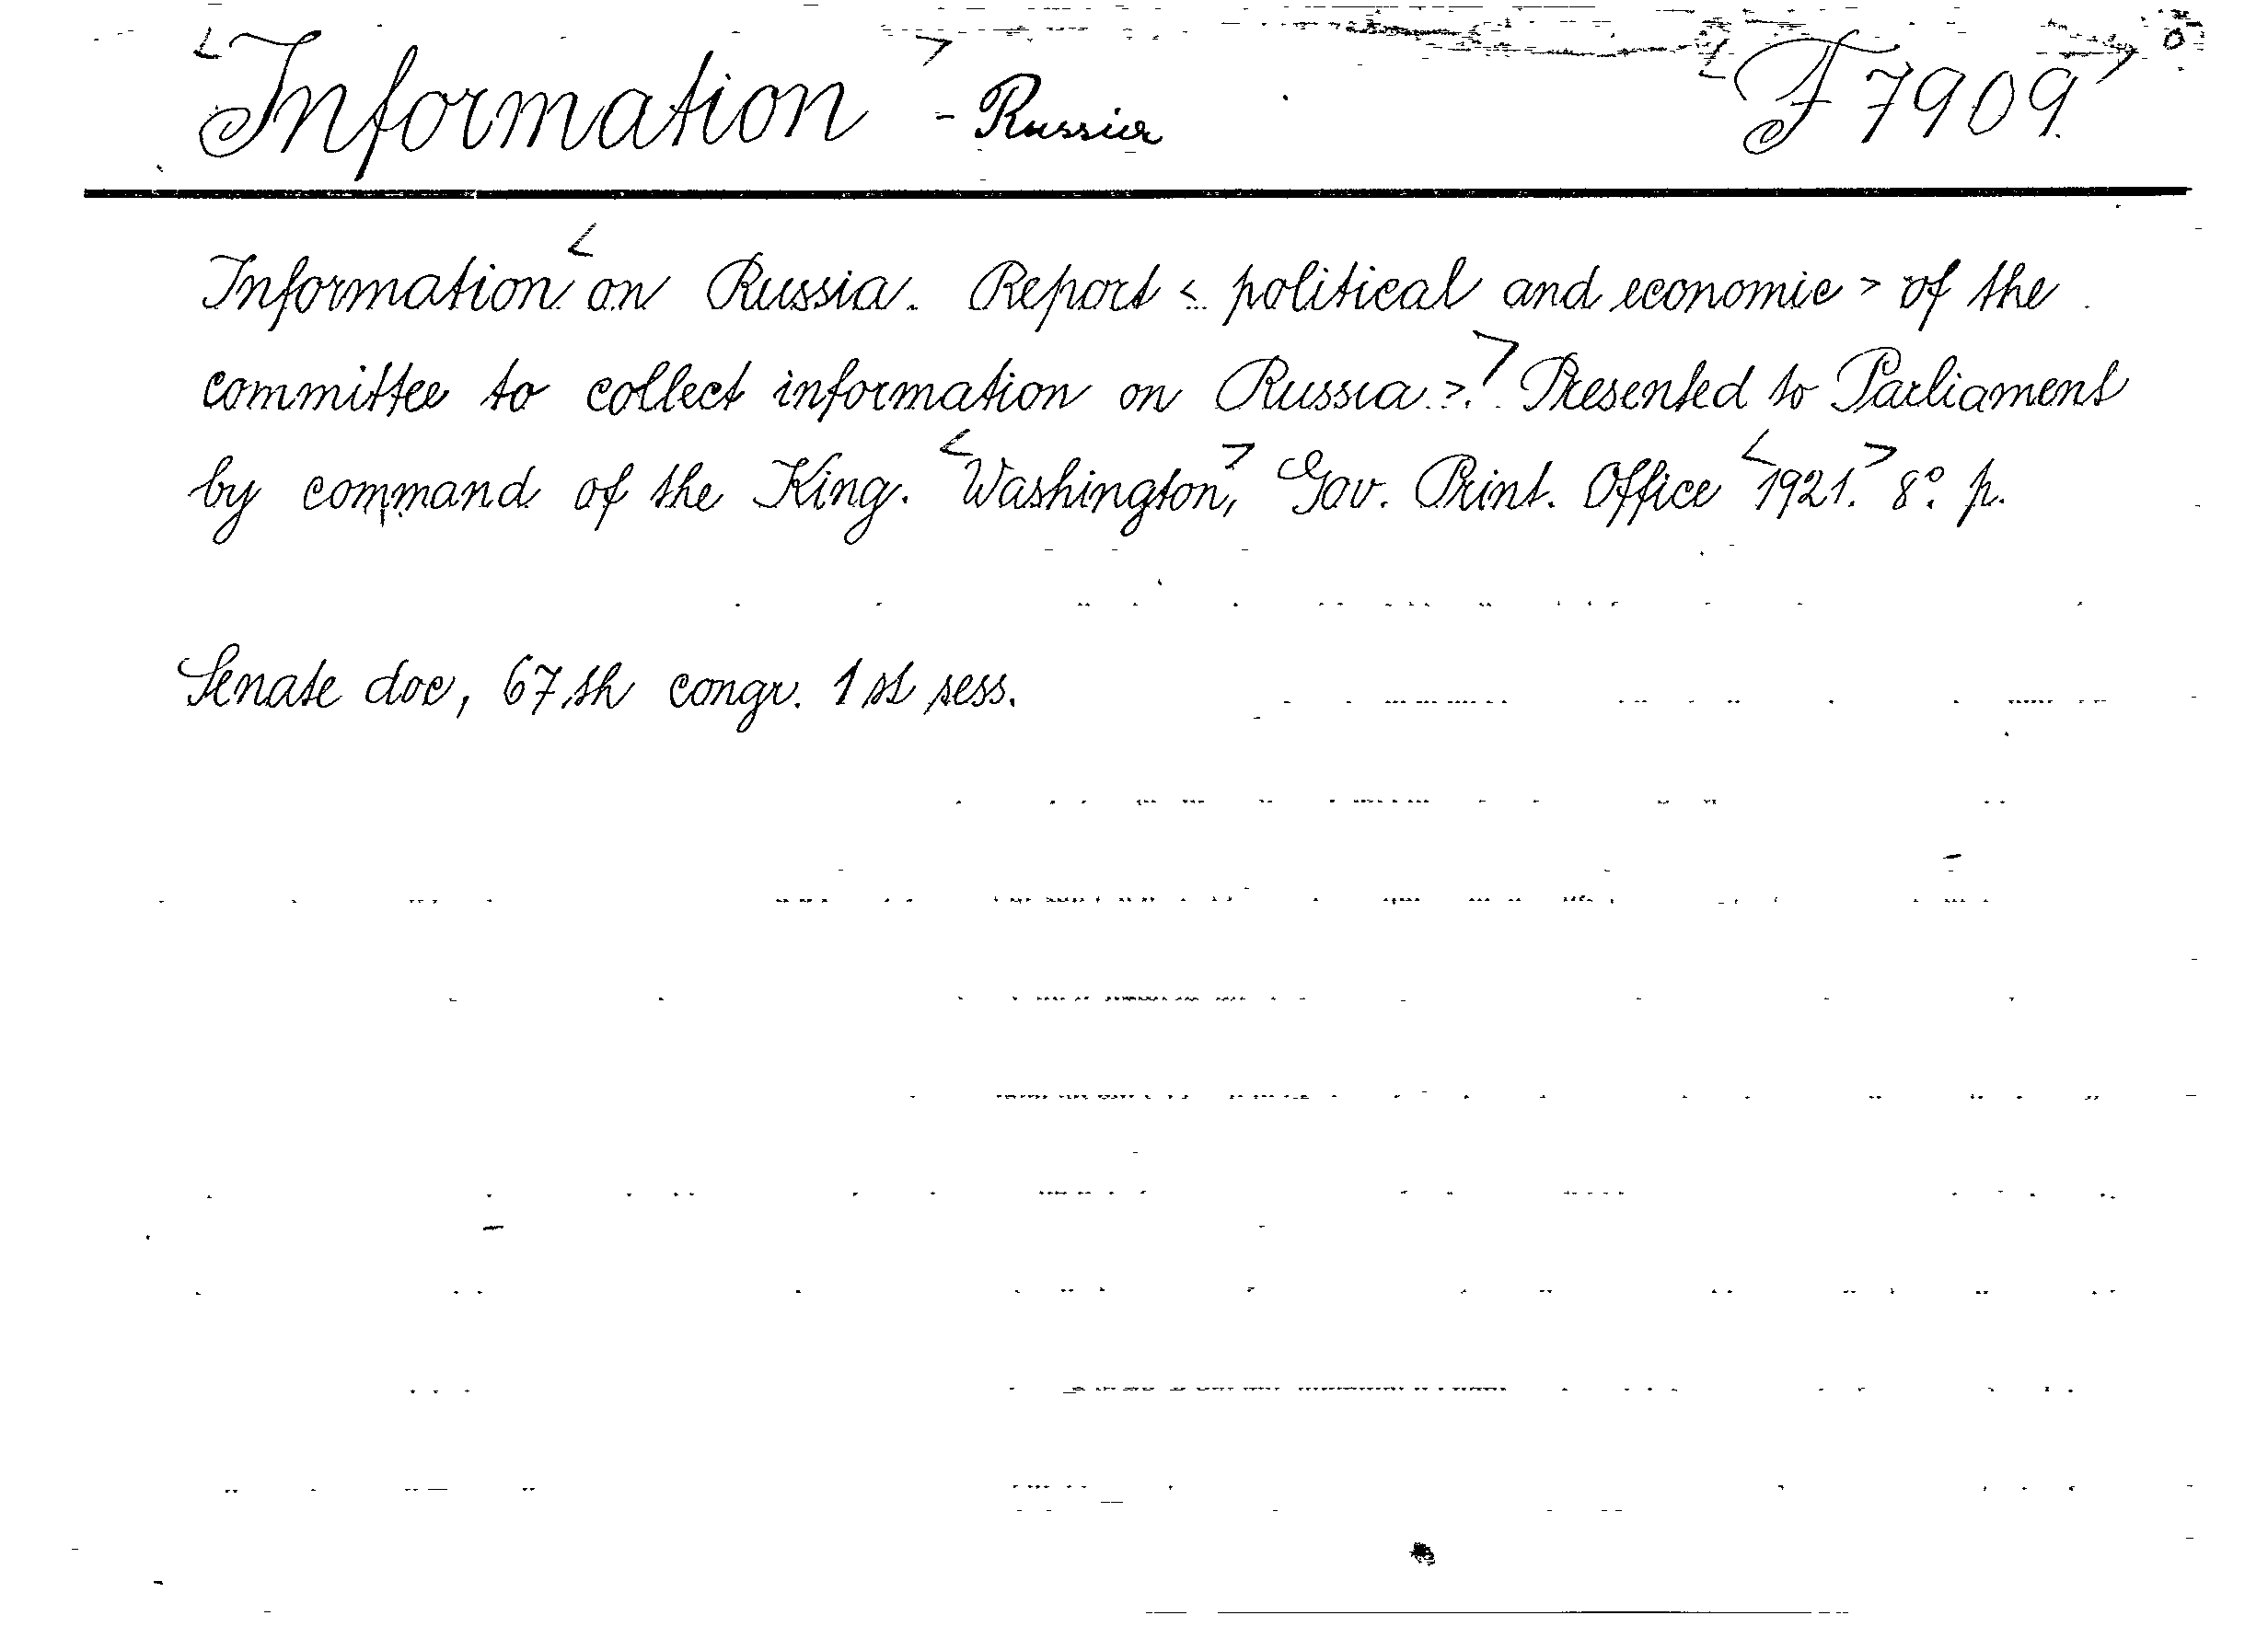 <Information> - Russia <F 7909>
Information <on Russia. Report < political and economic > of the
committee to collect information on Russia >.> Presented to Parliament
by command of the King. <Washington,> Gov. Print. Office <1921.> 8°. p.
Senate doc, 67.th congr. 1 st sess.